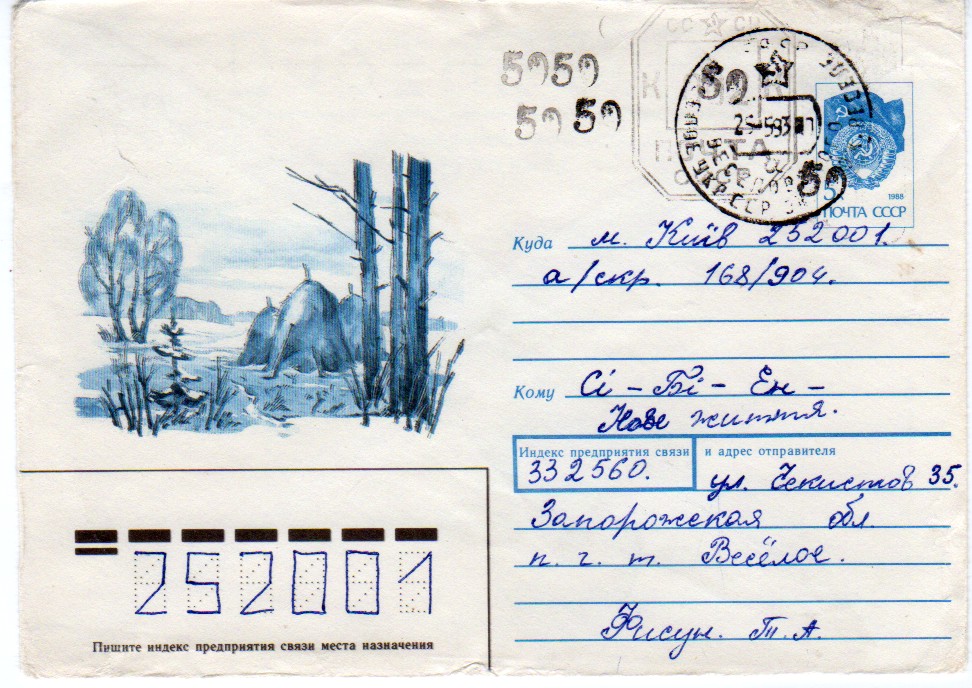 50 50
50 50
СС СР
50
ПОЧТА
25-593
УКР.ССР
50
5к
1988
ПОЧТА СССР
Куда м. Київ 252001.
а/скр. 168/904.
Кому Сі-Бі-Ен-
Нове життя.
Индекс предприятия связи и адрес отправителя
332560. ул. Чекистов 35.
Запорожская обл.
п. г. т. Весёлое.
Фисун. Т. А.
252001
Пишите индекс предприятия связи места назначения